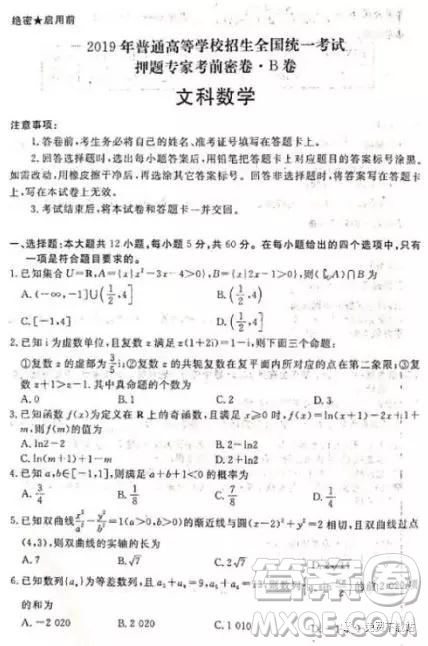 绝密★启用前
2019年普通高等学校招生全国统一考试
押题专家考前密卷·B卷
文科数学
注意事项：
1.答卷前,考生务必将自己的姓名、准考证号填写在答题卡上。
2.回答选择题时,选出每小题答案后,用铅笔把答题卡上对应题目的答案标号涂黑。
如需改动,用橡皮擦干净后,再选涂其它答案标号。回答非选择题时,将答案写在答题卡
上,写在本试卷上无效。
3.考试结束后,将本试卷和答题卡一并交回。
一、选择题:本大题共12小题,每小题5分,共60分。在每小题给出的四个选项中,只有
一项是符合题目要求的。
1.已知集合U=R,A={x|x²-3x-4>0},B={x|2x-1>0},则(∁ᵤA)∩B为
A.(-∞,-1]∪(1/2,4] B.(1/2,4]
C.[-1,4] D.
2.已知i为虚数单位,且复数z满足z(1+2i)=1-i,则下面三个命题:
①复数z的虚部为3/5i;②复数z的共轭复数在复平面内所对应的点在第二象限;③复
数z+1>z-1.其中真命题的个数为
A.0 B.1 C.2 D.3
3.已知函数f(x)为定义在R上的奇函数,且满足x≥0时,f(x)=ln(x+1)-2x+1+
m,则f(m)的值为
A.ln2-2 B.2-ln2
C.ln(m+1)-1 D.2+ln2
4.已知a,b∈[-1,1],则满足a+b+1<0的概率为
A.3/4 B.1/8 C.7/8 D.1/4
5.已知双曲线x²/a²-y²/b²=1(a>0,b>0)的渐近线与圆(x-2)²+y²=2相切,且双曲线过点
(4,3),则双曲线的实轴的长为
A.7 B.√7 C.2√7
6.已知数列{aₙ}为等差数列,且
的和为
A.-2 020 B.2 020 C.1 010
答案圈
MXQE.COM